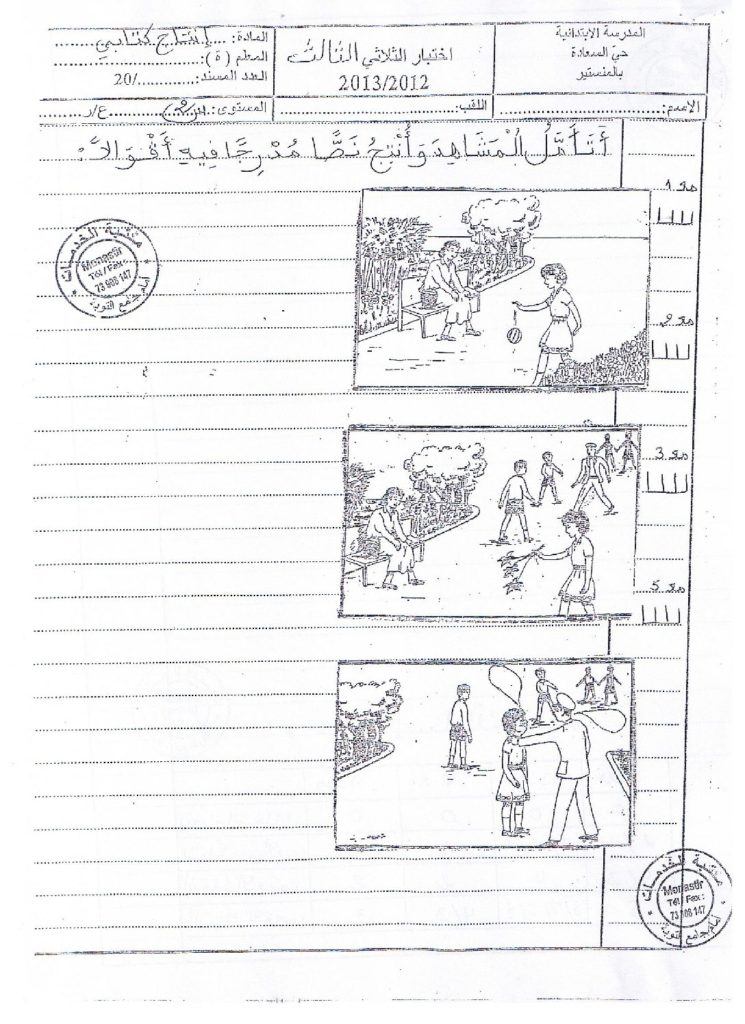 المدرسة الابتدائية
حيّ السعادة
بالمنستير
اختبار الثلاثي الثالث
2013/2012
المادة: إنتاج كتابي
المعلم (ة):
العدد المسند: /20
الاسم:
اللقب:
المستوى: س2 ع/ر
أَتَأَمَّلُ الْمَشَاهِدَ وَأُنْتِجُ نَصًّا مُدْرِجًا فِيهِ أَقْوَالاً:
مع 1
مع 2
مع 3
مع 5
مكتبة الخدمات
Monastir
Tél / Fax:
73 908 147
أمام جامع التوبة
مكتبة الخدمات
Monastir
Tél / Fax:
73 908 147
أمام جامع التوبة